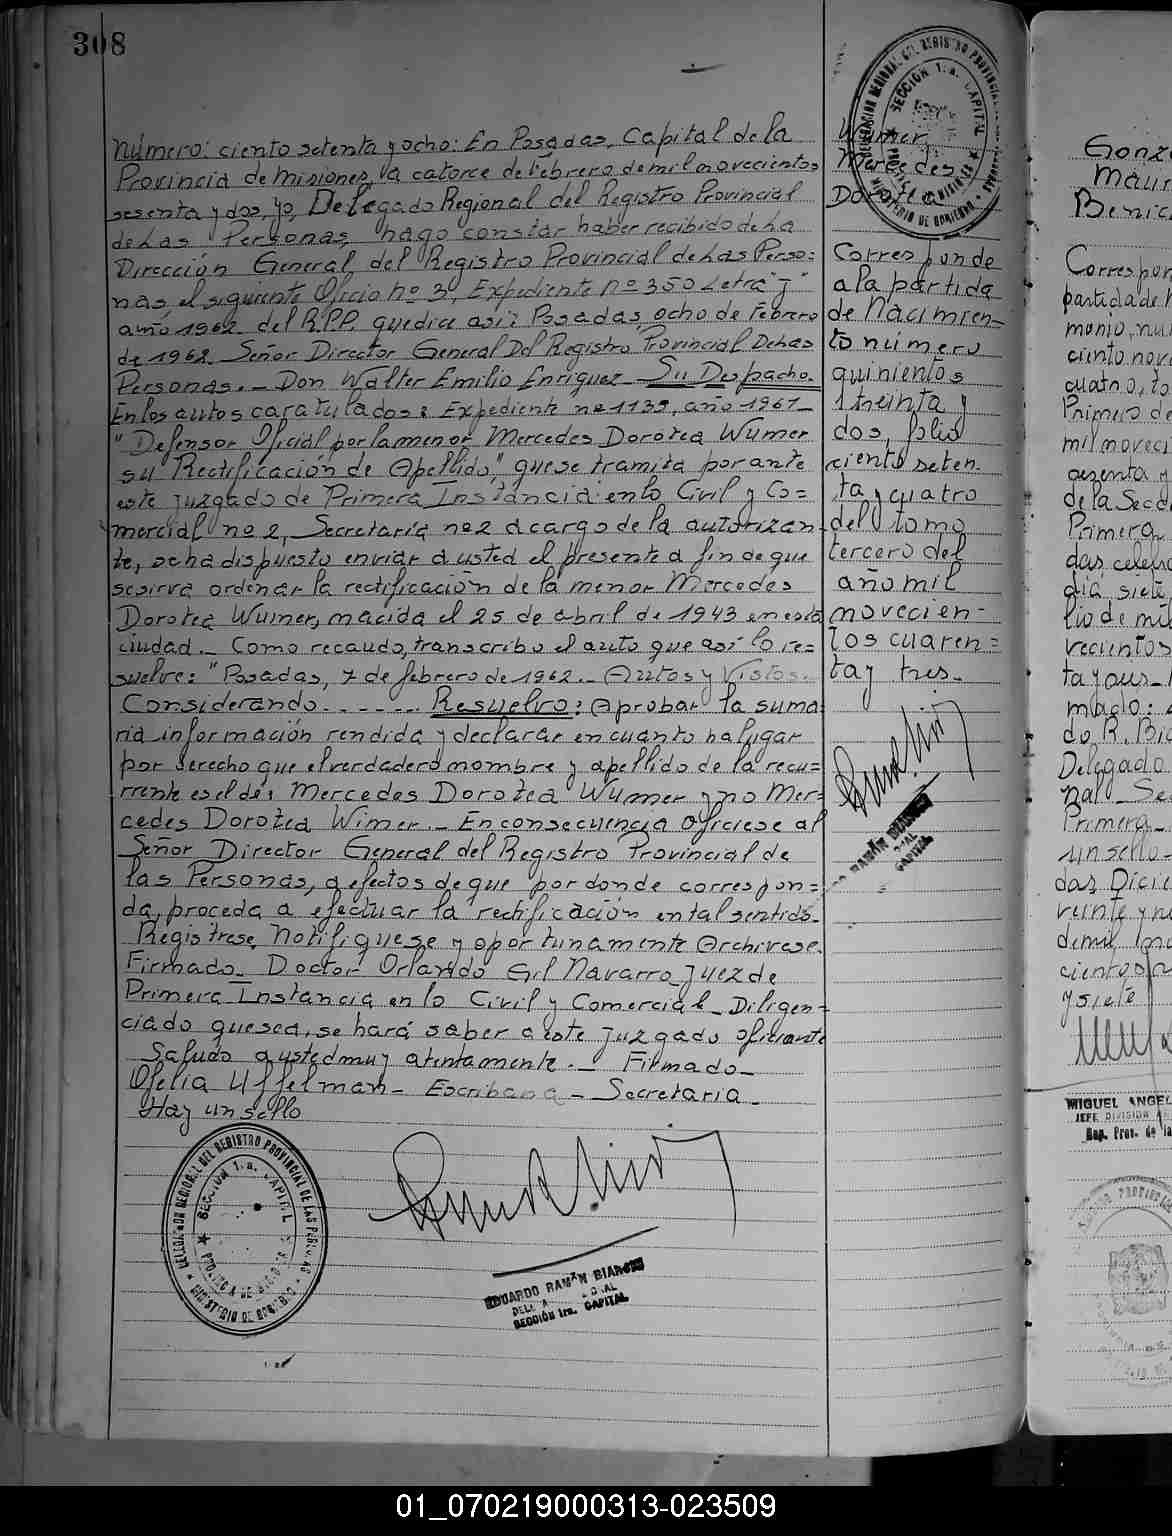 308
Número: ciento setenta y ocho: En Posadas, Capital de la
Provincia de Misiones, a catorce de Febrero de mil novecientos
sesenta y dos, yo, Delegado Regional del Registro Provincial
de Las Personas, hago constar haber recibido de La
Dirección General del Registro Provincial de Las Perso=
nas, el siguiente Oficio nº 3, Expediente nº 350 Letra "J"
año 1962 del R.P.P. que dice así: Posadas, ocho de Febrero
de 1962. Señor Director General Del Registro Provincial De Las
Personas. _ Don Walter Emilio Enriquez _ Su Despacho.
En los autos caratulados: Expediente nº 1139, año 1961 _
"Defensor Oficial por la menor Mercedes Dorotea Wumer
su Rectificación de Apellido", que se tramita por ante
este juzgado de Primera Instancia en lo Civil y Co=
mercial nº 2, Secretaría nº 2 a cargo de la autorizan-
te, se ha dispuesto enviar a usted el presente a fin de que
se sirva ordenar la rectificación de la menor Mercedes
Dorotea Wumer, nacida el 25 de abril de 1943 en esta
ciudad _ Como recaudo, transcribo el auto que así lo re=
suelve: "Posadas, 7 de febrero de 1962. _ Autos y Vistos.
Considerando . - - - - . . Resuelvo: Aprobar la suma
ria información rendida y declarar en cuanto ha lugar
por derecho que el verdadero nombre y apellido de la recu=
rrente es el de: Mercedes Dorotea Wumer y no Mer=
cedes Dorotea Wimer. _ En consecuencia Oficiese al
Señor Director General del Registro Provincial de
las Personas, a efectos de que por donde correspon=
da, proceda a efectuar la rectificación en tal sentido _
Registrese, Notifiquese y oportunamente Archivese.
Firmado _ Doctor Orlando Gil Navarro Juez de
Primera Instancia en lo Civil y Comercial _ Diligen=
ciado que sea, se hará saber a este juzgado oficiante
Saludo a usted muy atentamente. _ Firmado _
Ofelia Uffelman _ Escribana _ Secretaria _
Hay un sello
DELEGACION REGIONAL DEL REGISTRO PROVINCIAL DE LAS PERSONAS
SECCION 1ra. CAPITAL
PROVINCIA DE MISIONES
MINISTERIO DE GOBIERNO
EDUARDO RAMÓN
SECCIÓN 1ra. CAPITAL
DELEGACION REGIONAL DEL REGISTRO PROVINCIAL
SECCION 1.a. CAPITAL
MINISTERIO DE GOBIERNO
Wumer
Mercedes
Dorotea
Corresponde
a la partida
de Nacimien-
to número
quinientos
treinta y
dos, folio
ciento seten-
ta y cuatro
del tomo
tercero del
año mil
novecien-
tos cuaren=
ta y tres _
RAMÓN
CAPITAL
Benic
Correspon
partida de
monio, nú
ciento nov
cuatro, to
Primero d
mil noveci
de la Secc
Primera
das celebra
día siete
lio de mil
vecientos
mado:
do R. Bia
Delegado
nal _ Sec
Primera _
un sello _
das, Dicie
veinte y
de mil
cientos
y siete
MIGUEL ANGEL
JEFE DIVISION
Rep. Prov. de la
01_070219000313-023509